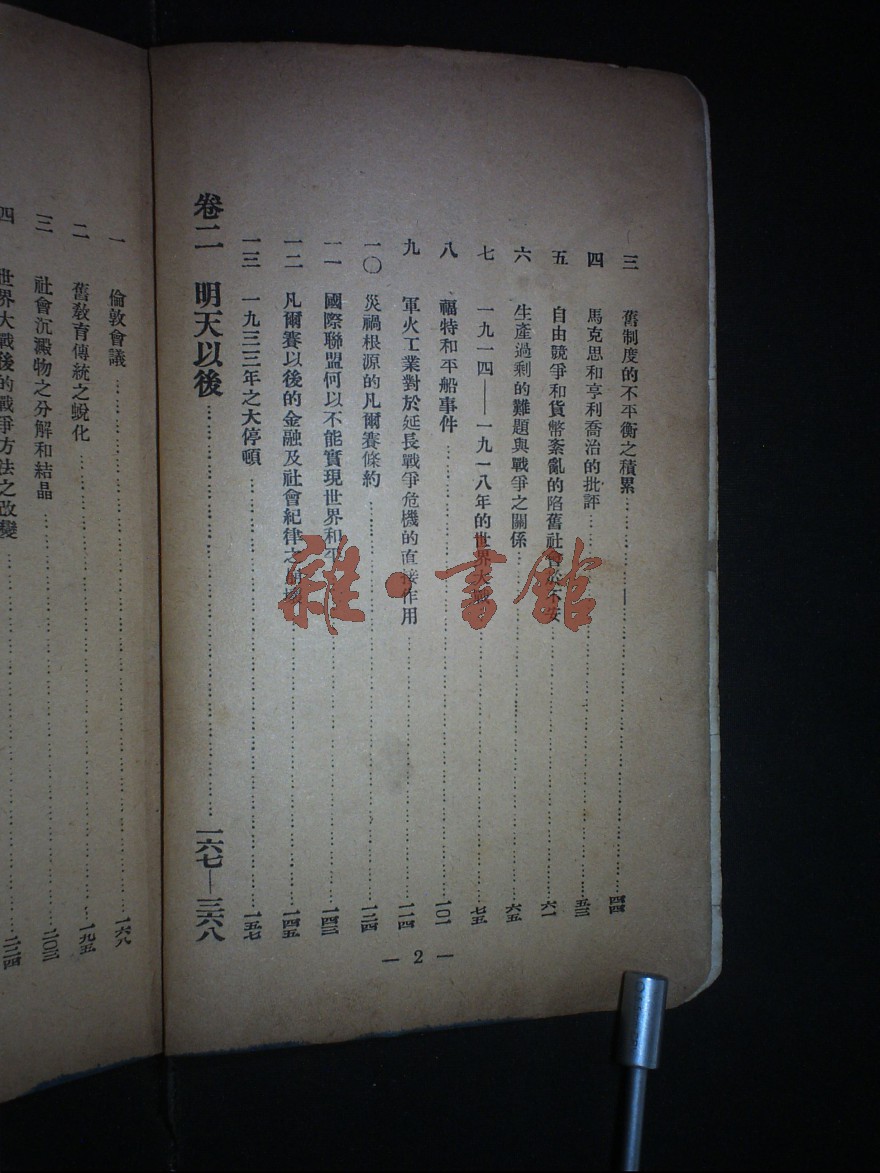 三 舊制度的不平衡之積累 四四
四 馬克思和亨利喬治的批評 五三
五 自由競爭和貨幣紊亂的陷舊社會於不安 六一
六 生產過剩的難題與戰爭之關係 六五
七 一九一四——一九一八年的世界大戰 七五
八 福特和平船事件 一〇一
九 軍火工業對於延長戰爭危機的直接作用 一一四
一〇 災禍根源的凡爾賽條約 一二四
一一 國際聯盟何以不能實現世界和平 一四三
一二 凡爾賽以後的金融及社會紀律之崩壞 一四五
一三 一九三三年之大停頓 一五七
卷二 明天以後 一六七—三六八
— 2 —
一 倫敦會議 一六八
二 舊敎育傳統之蛻化 一九五
三 社會沉澱物之分解和結晶 二〇三
四 世界大戰後的戰爭方法之改變 二二四
雜·書館